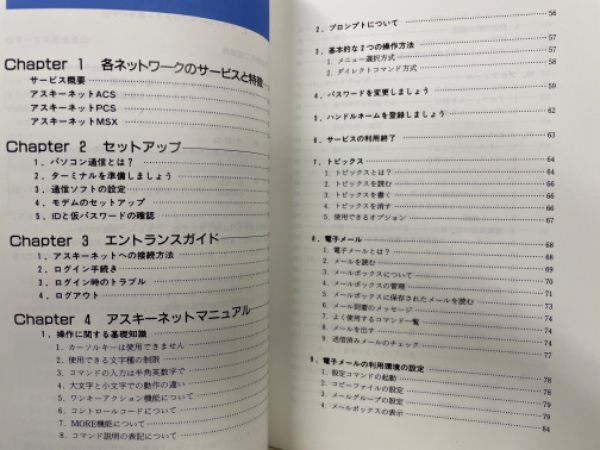 Chapter 1 各ネットワークのサービスと特徴
サービス概要
アスキーネットACS
アスキーネットPCS
アスキーネットMSX
Chapter 2 セットアップ
1．パソコン通信とは？
2．ターミナルを準備しましょう
3．通信ソフトの設定
4．モデムのセットアップ
5．IDと仮パスワードの確認
Chapter 3 エントランスガイド
1．アスキーネットへの接続方法
2．ログイン手続き
3．ログイン時のトラブル
4．ログアウト
Chapter 4 アスキーネットマニュアル
1．操作に関する基礎知識
1．カーソルキーは使用できません
2．使用できる文字種の制限
3．コマンドの入力は半角英数字で
4．大文字と小文字での動作の違い
5．ワンキーアクション機能について
6．コントロールコードについて
7．MORE機能について
8．コマンド説明の表記について
2．プロンプトについて 56
3．基本的な2つの操作方法 57
1．メニュー選択方式 57
2．ダイレクトコマンド方式 58
4．パスワードを変更しましょう 59
5．ハンドルネームを登録しましょう 62
6．サービスの利用終了 63
7．トピックス 64
1．トピックスとは？ 64
2．トピックスを読む 64
3．トピックスを書く 66
4．トピックスを消す 66
5．使用できるオプション 67
8．電子メール 68
1．電子メールとは？ 68
2．メールを読む 69
3．メールボックスについて 71
4．メールボックスの管理 71
5．メールボックスに保存されたメールを読む 73
6．メール到着のメッセージ 74
7．よく使用するコマンド一覧 74
8．メールを出す 74
9．送信済みメールのチェック 77
9．電子メールの利用環境の設定 78
1．設定コマンドの起動 78
2．コピーファイルの設定 79
3．メールグループの設定 79
4．メールボックスの表示 84